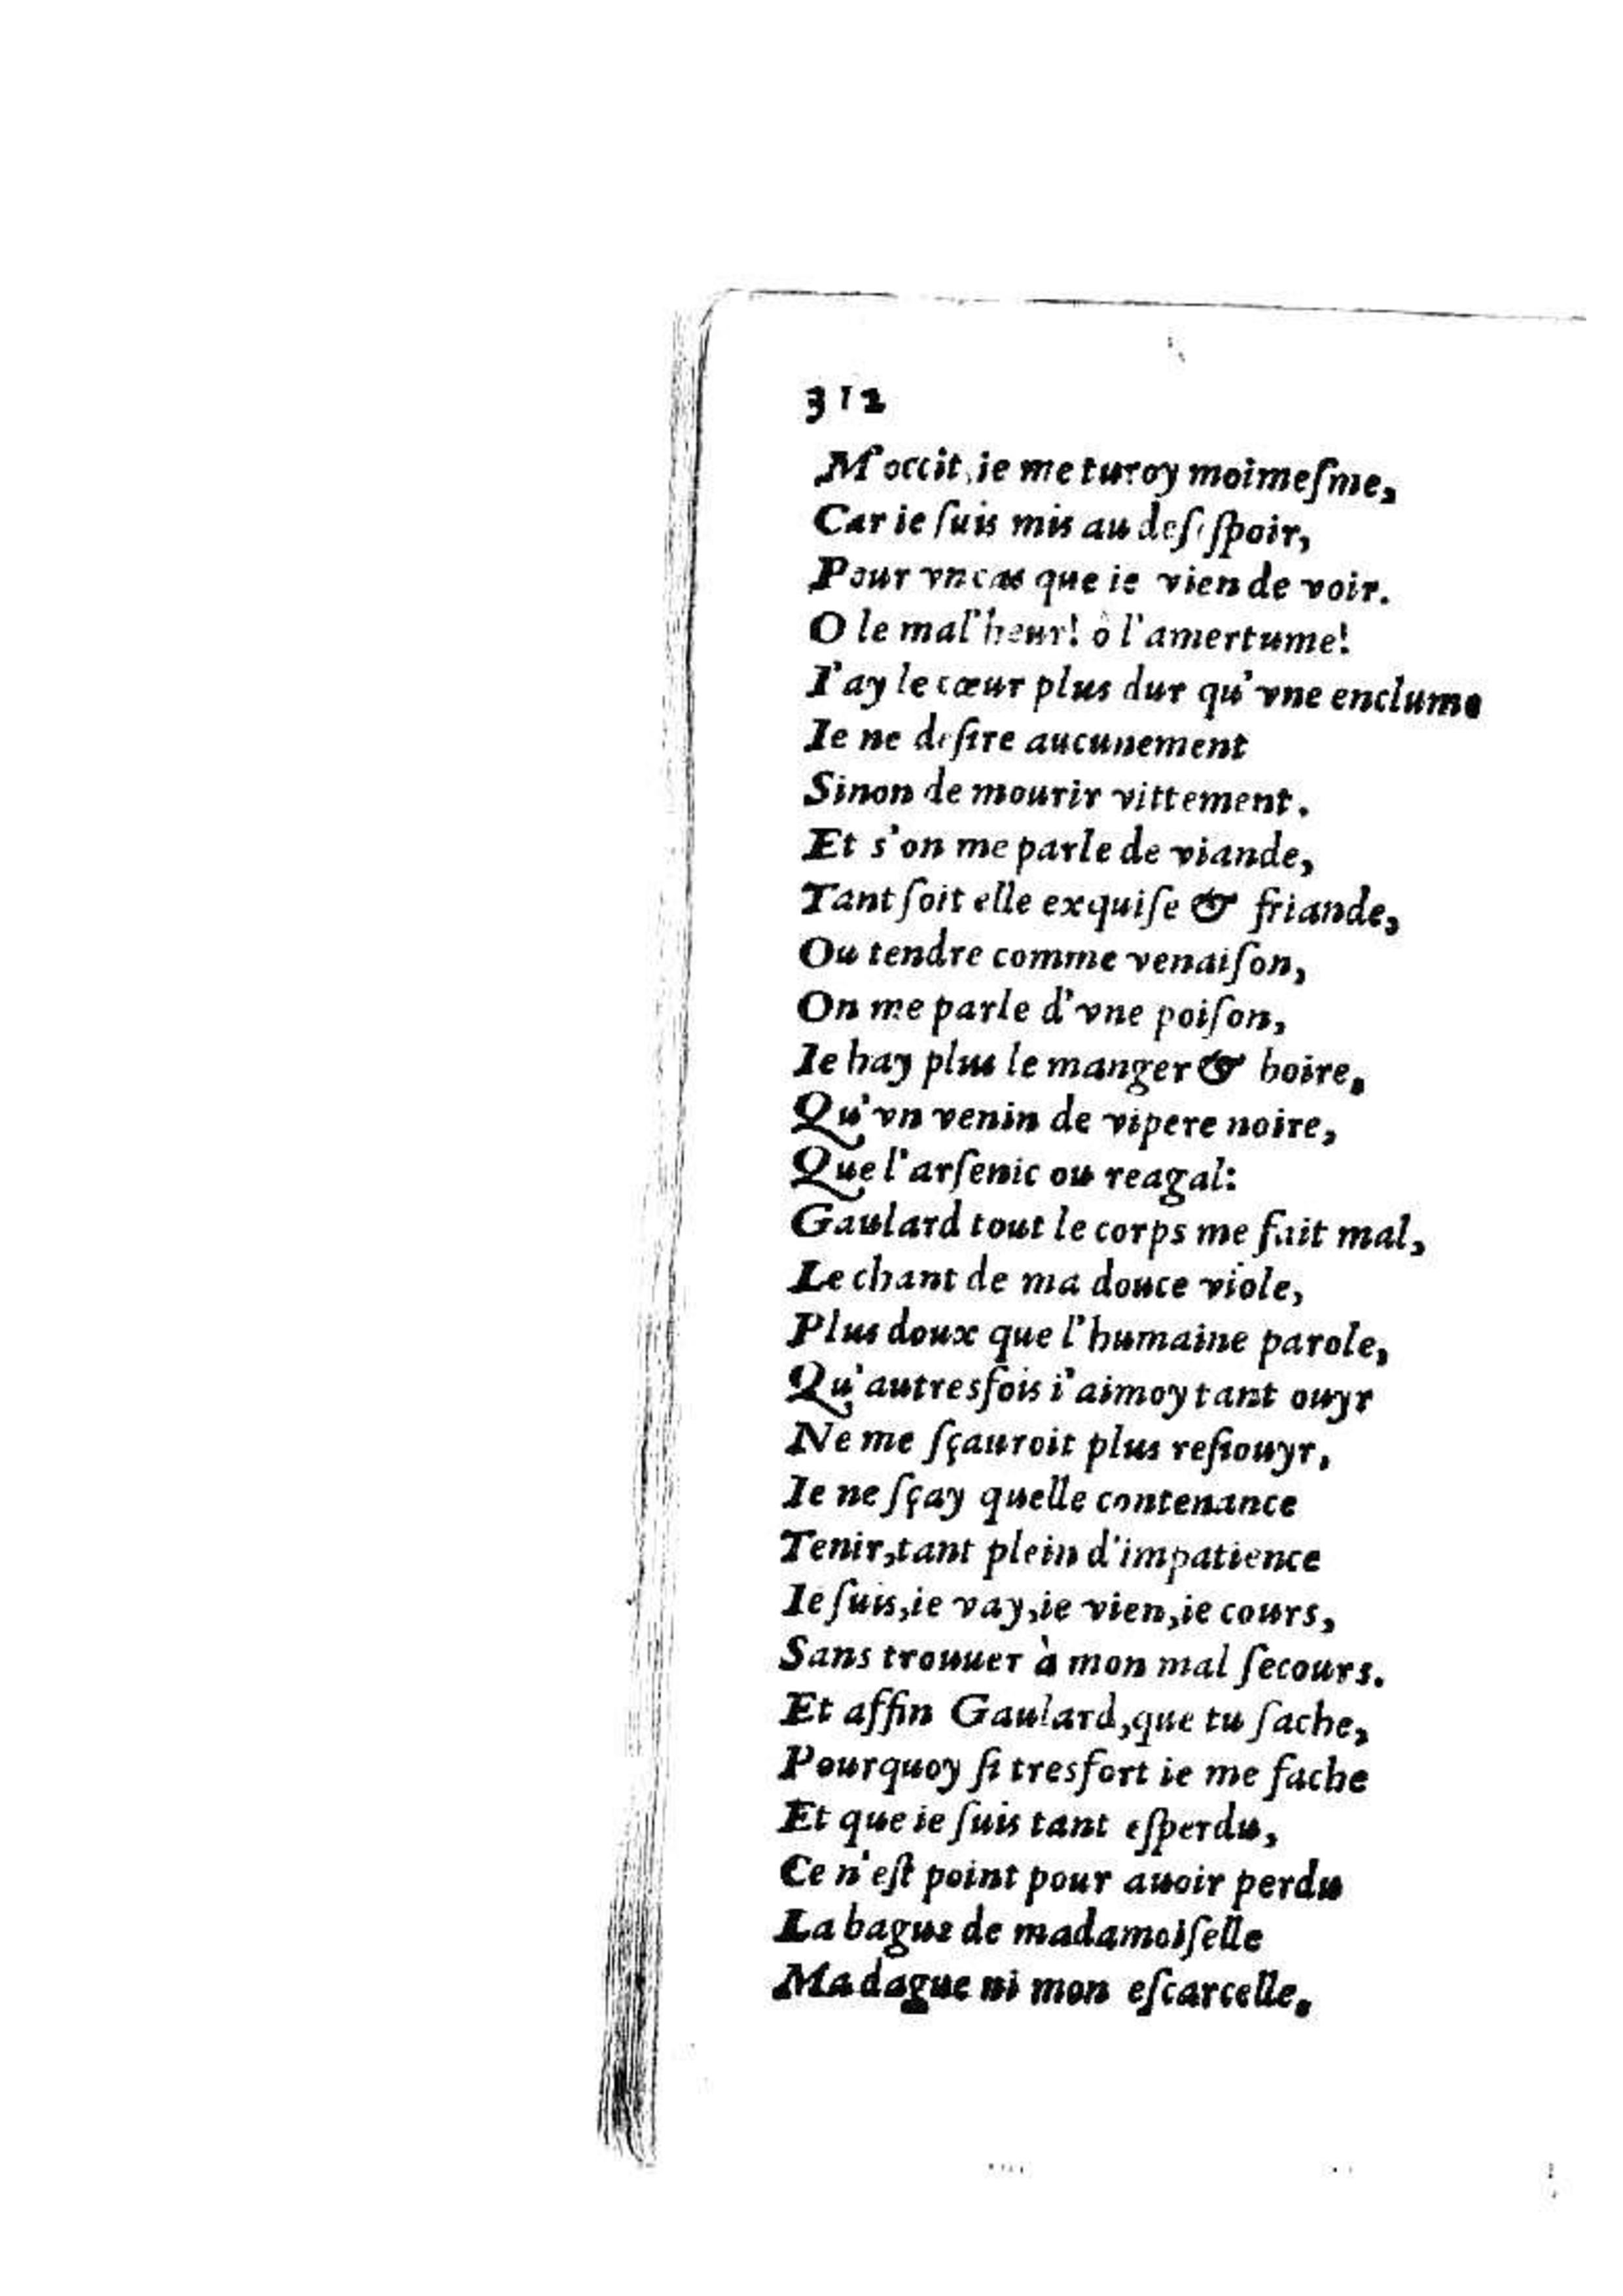 312
M'occit, ie me turoy moimeſme,
Car ie ſuis mis au deſeſpoir,
Pour vn cas que ie vien de voir.
O le mal'heur! ô l'amertume!
I'ay le cœur plus dur qu'vne enclume
Ie ne deſire aucunement
Sinon de mourir vittement.
Et s'on me parle de viande,
Tant ſoit elle exquiſe & friande,
Ou tendre comme venaiſon,
On me parle d'vne poiſon,
Ie hay plus le manger & boire,
Qu'vn venin de vipere noire,
Que l'arſenic ou reagal:
Gaulard tout le corps me fait mal,
Le chant de ma douce viole,
Plus doux que l'humaine parole,
Qu'autresfois i'aimoy tant ouyr
Ne me ſçauroit plus reſiouyr,
Ie ne ſçay quelle contenance
Tenir, tant plein d'impatience
Ie ſuis, ie vay, ie vien, ie cours,
Sans trouuer à mon mal ſecours.
Et affin Gaulard, que tu ſache,
Pourquoy ſi tresfort ie me fache
Et que ie ſuis tant eſperdu,
Ce n'eſt point pour auoir perdu
La bague de madamoiſelle
Ma dague ni mon eſcarcelle.